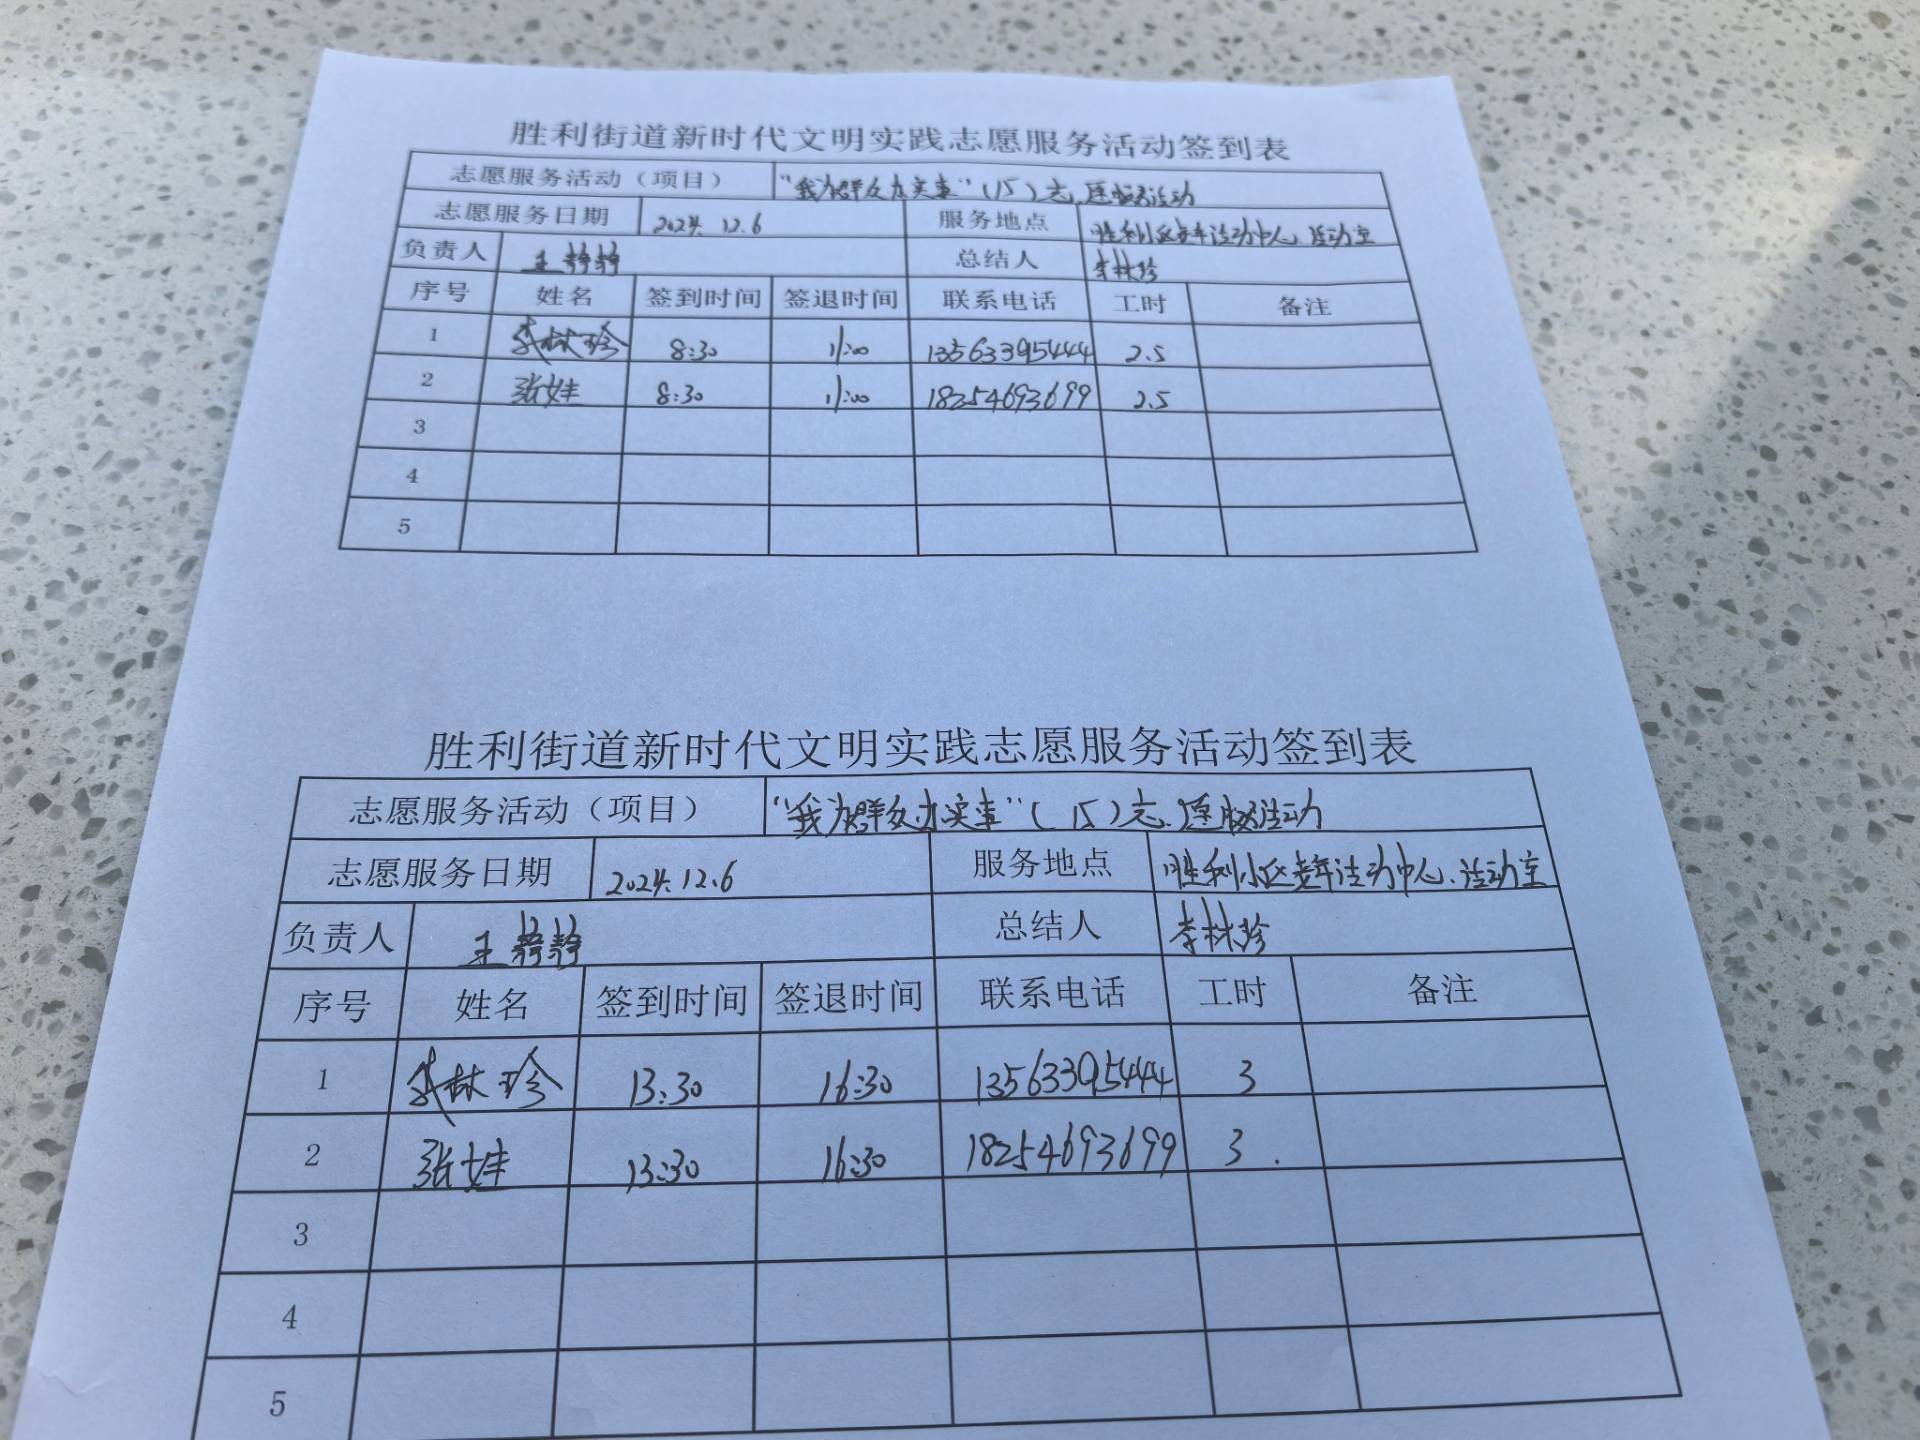 胜利街道新时代文明实践志愿服务活动签到表
志愿服务活动（项目） “我为群众办实事”（15）志愿服务活动
志愿服务日期 2024.12.6 服务地点 胜利小区老年活动中心、活动室
负责人 王静静 总结人 李林珍
序号 姓名 签到时间 签退时间 联系电话 工时 备注
1 李林珍 8:30 11:00 13563395444 2.5
2 张娃 8:30 11:00 18254693699 2.5
3
4
5
胜利街道新时代文明实践志愿服务活动签到表
志愿服务活动（项目） “我为群众办实事”（15）志愿服务活动
志愿服务日期 2024.12.6 服务地点 胜利小区老年活动中心、活动室
负责人 王静静 总结人 李林珍
序号 姓名 签到时间 签退时间 联系电话 工时 备注
1 李林珍 13:30 16:30 13563395444 3
2 张娃 13:30 16:30 18254693699 3.
3
4
5